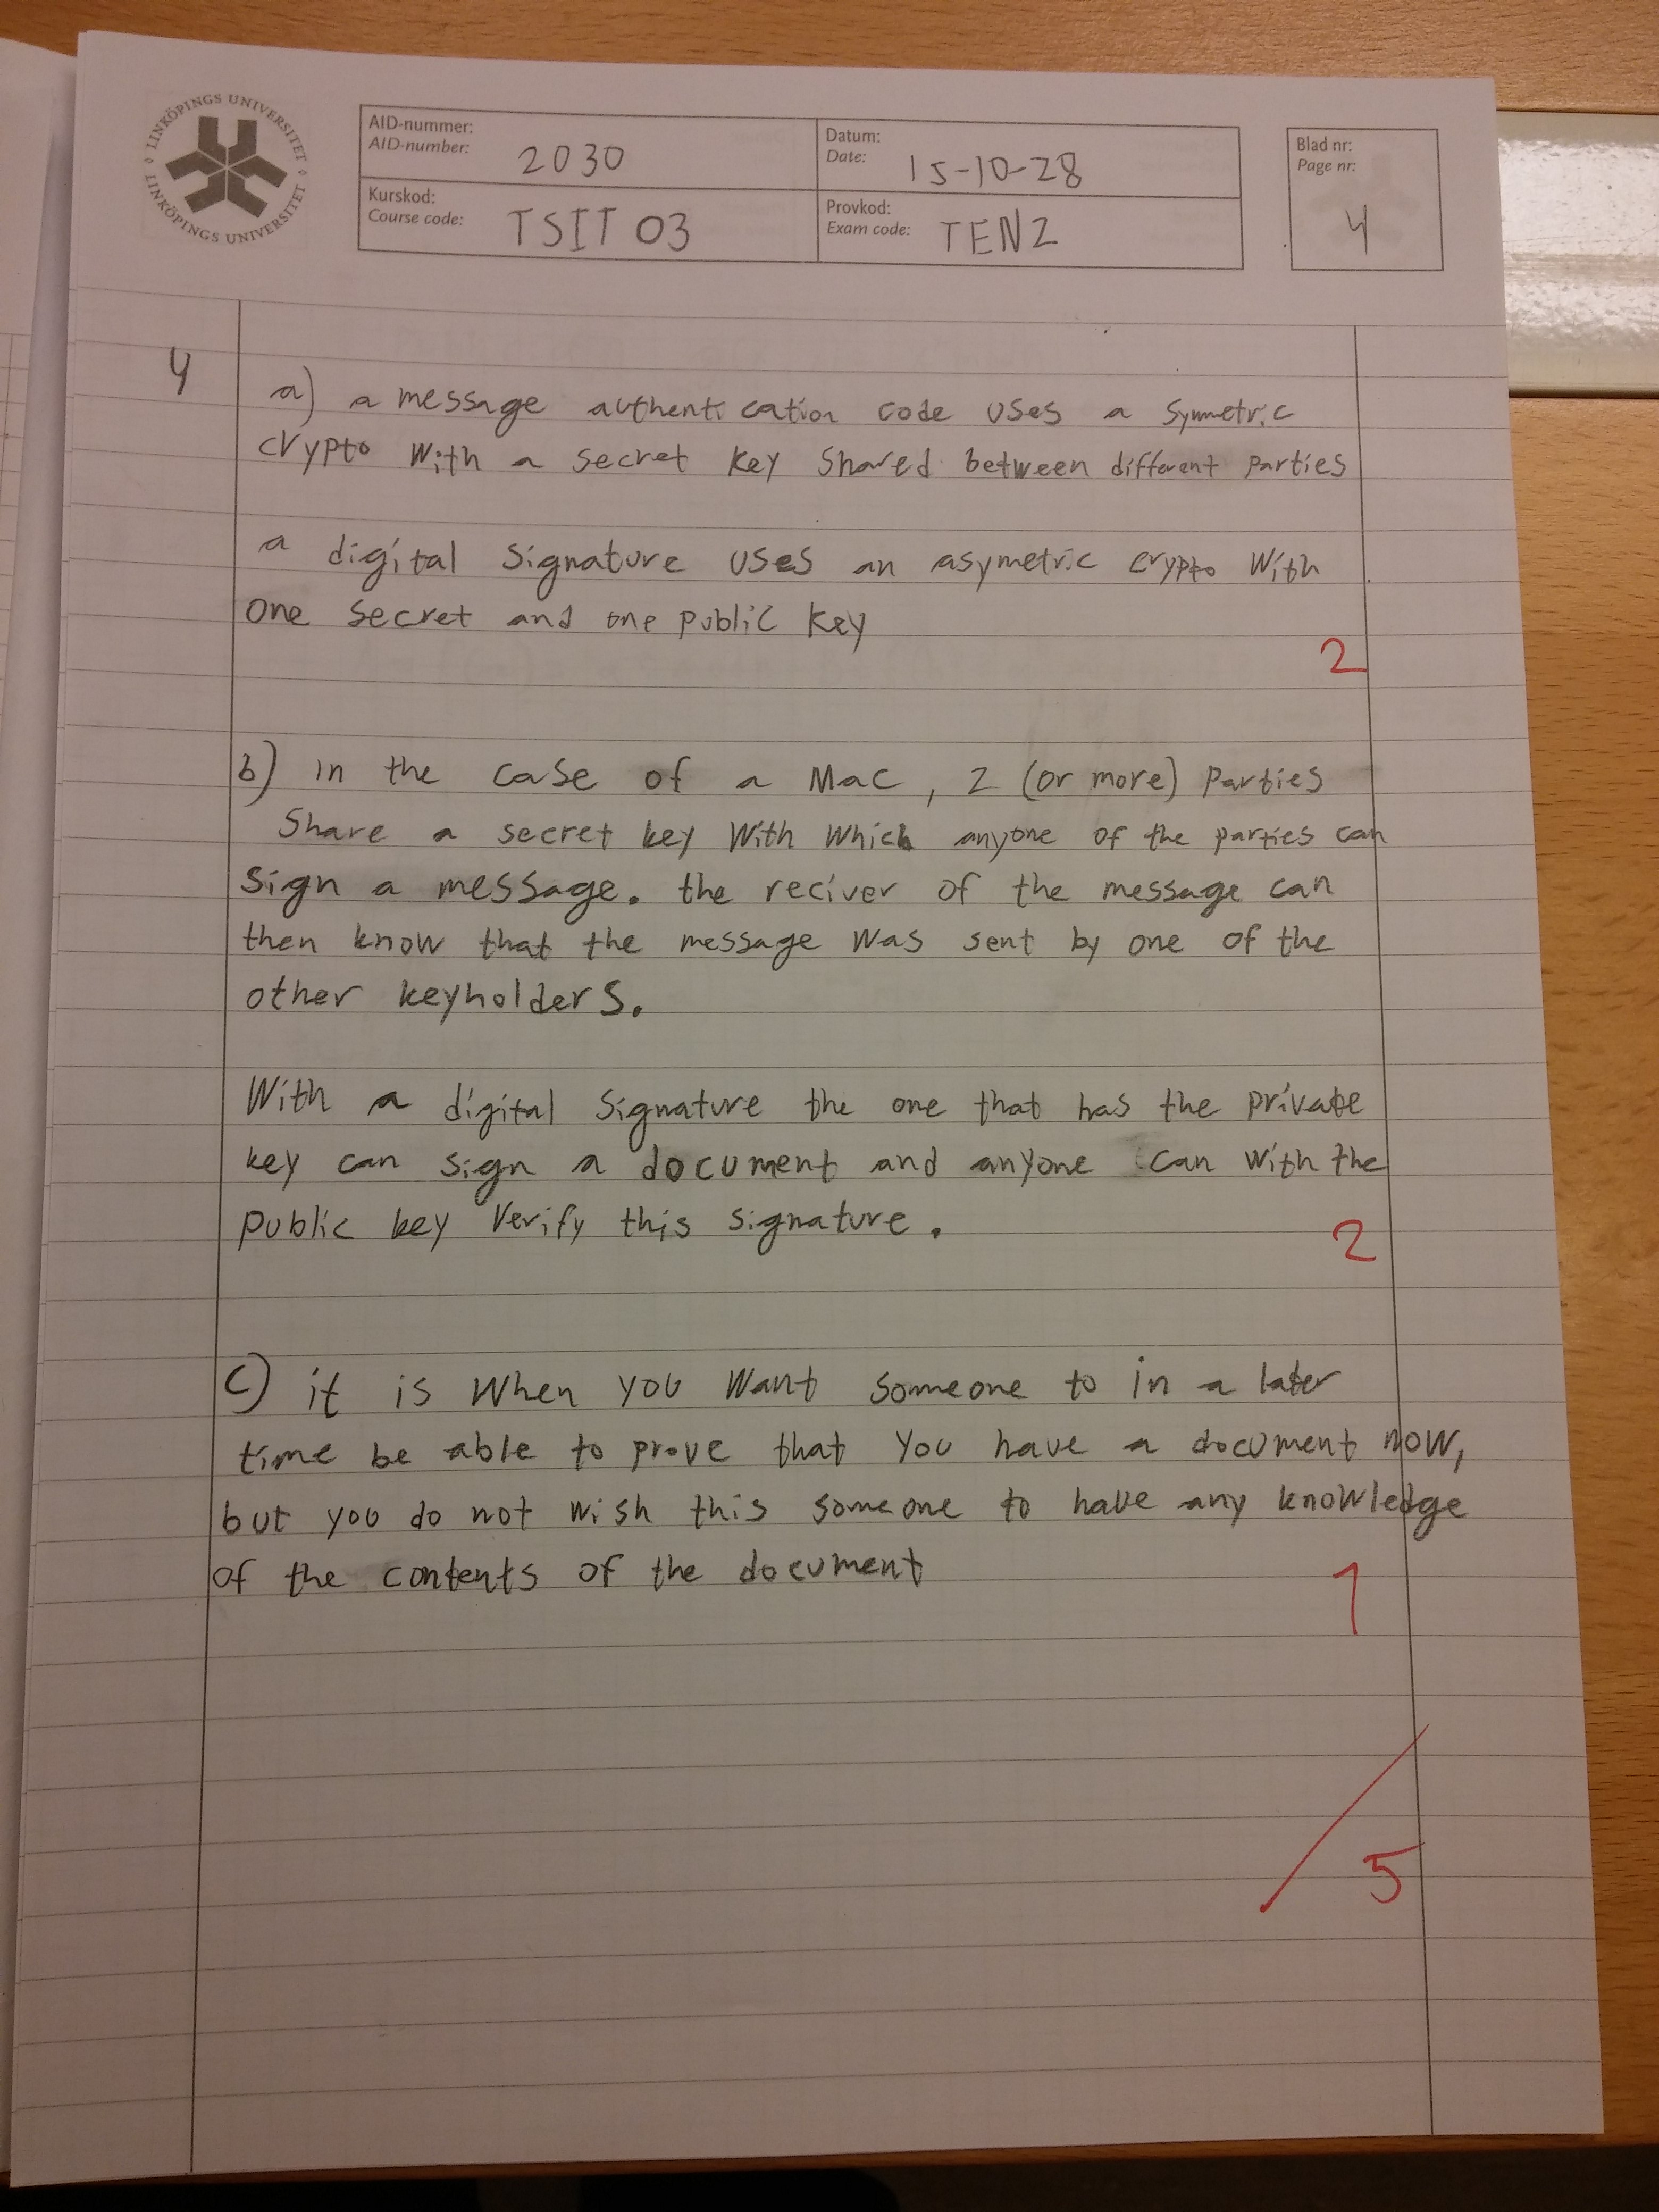 LINKÖPINGS UNIVERSITET
LINKÖPINGS UNIVERSITET
AID-nummer:
AID-number: 2030
Datum:
Date: 15-10-28
Blad nr:
Page nr:
4
Kurskod:
Course code: TSIT 03
Provkod:
Exam code: TEN2
4
a) a message authentication code uses a symetric
crypto with a secret key shared between different parties
a digital signature uses an asymetric crypto with
one secret and one public key
2
b) in the case of a Mac, 2 (or more) parties
share a secret key with which anyone of the parties can
sign a message. the reciver of the message can
then know that the message was sent by one of the
other keyholders.
With a digital signature the one that has the private
key can sign a document and anyone can with the
public key verify this signature.
2
c) it is when you want someone to in a later
time be able to prove that you have a document now,
but you do not wish this someone to have any knowledge
of the contents of the document
1
/
5